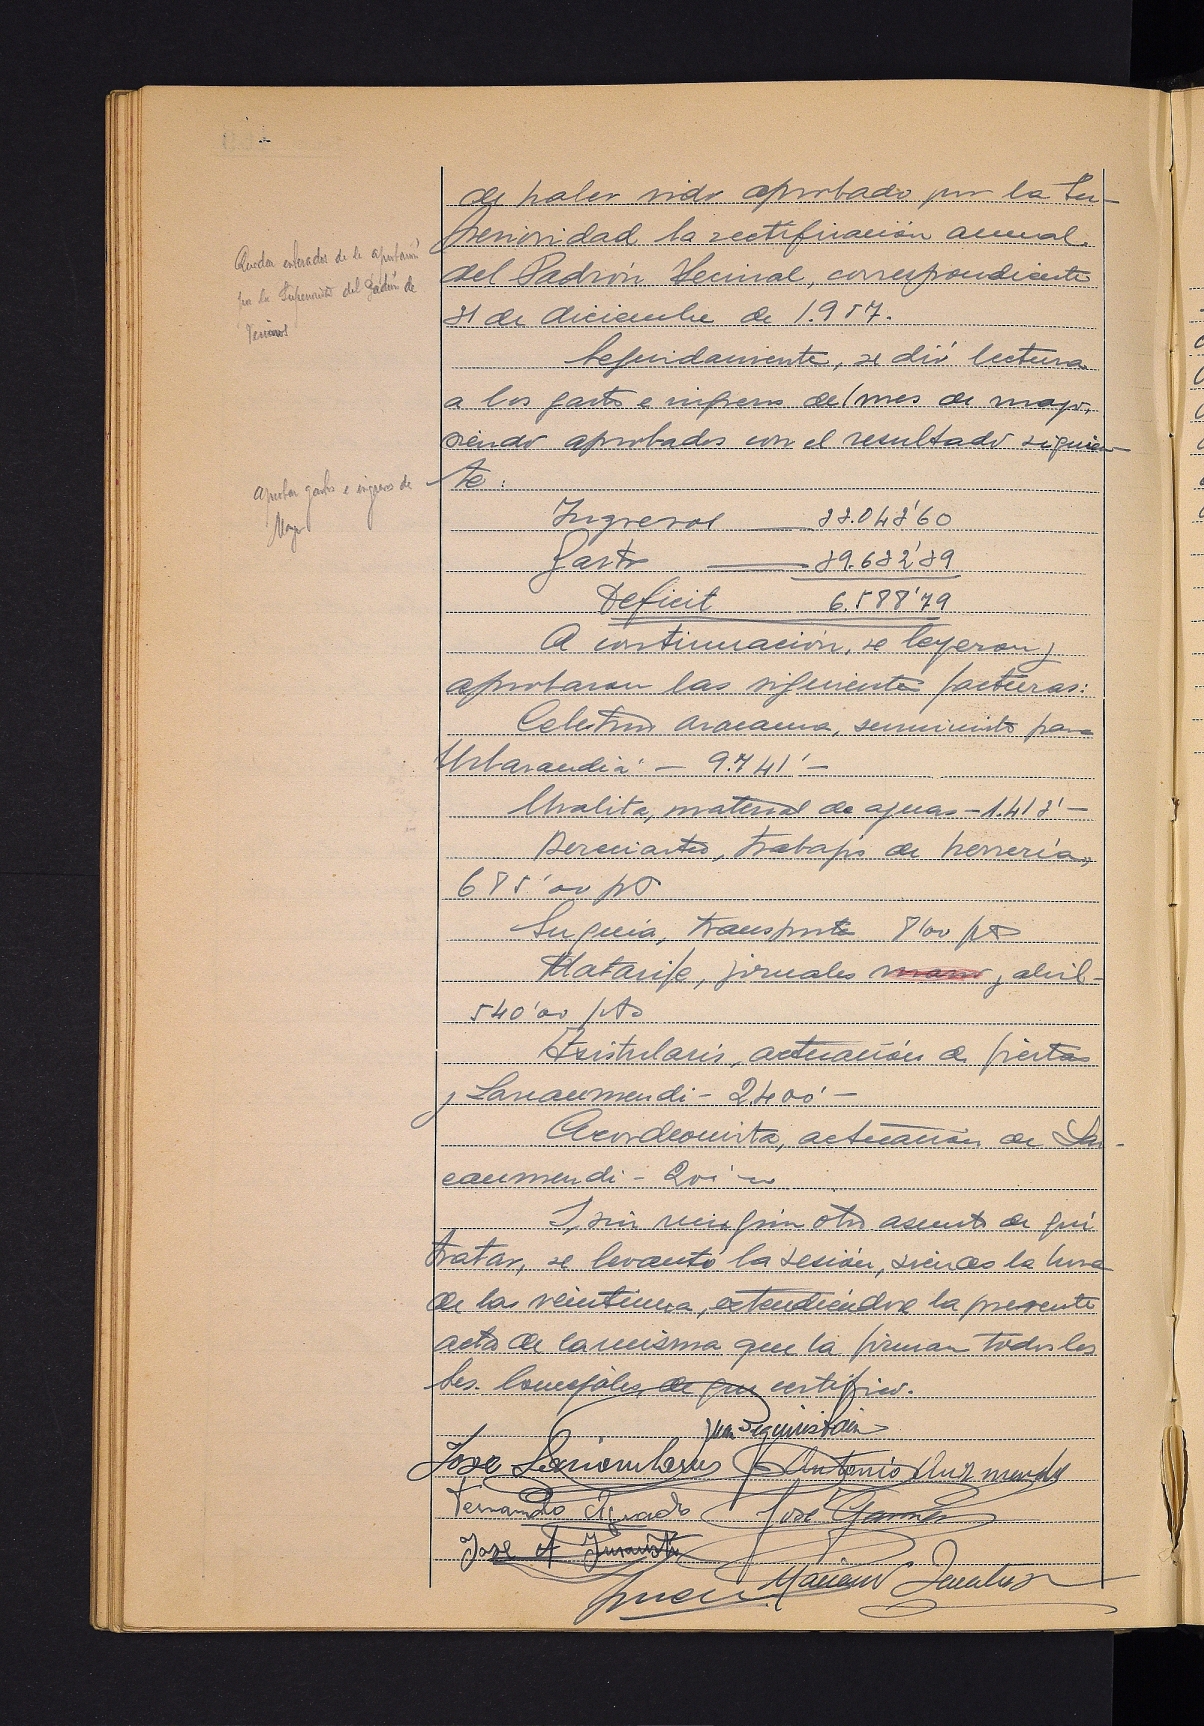 de haber sido aprobado por la Su-
perioridad la rectificación anual
del Padrón Vecinal, correspondiente
31 de diciembre de 1.957.
Quedar enterados de la aprobación
por la Superioridad del Padrón de
Vecinos
Seguidamente, se dió lectura
a los gastos e ingresos del mes de mayo,
siendo aprobados con el resultado siguien-
te:
Aprobar gastos e ingresos de
Mayo
Ingresos — 33.043'60
Gastos — 39.632'39
Deficit 6.588'79
A continuación, se leyeron y
aprobaron las siguientes facturas:
Celestino Aracama, suministro para
Urbarandia - 9.741'-
Uralita, material de aguas - 1.413'-
trabajos de herrería,
685'00 pts
Segura, transporte 8'00 pts
Matarife, jornales marzo y abril -
540'00 pts
Txistularis, actuación de fiestas
y Sancaumendi - 2.400'-
Acordeonista, actuación de San-
caumendi - 200'-
Y, sin ningún otro asunto de qué
tratar, se levantó la sesión, siendo la hora
de las veintiuna, extendiéndose la presente
acta de la misma que la firman todos los
Srs. Concejales de que certifico.
Juan Eguiristain
Jose Antonio
Fernando Aguado Jose
Jose A
Juan Mariano